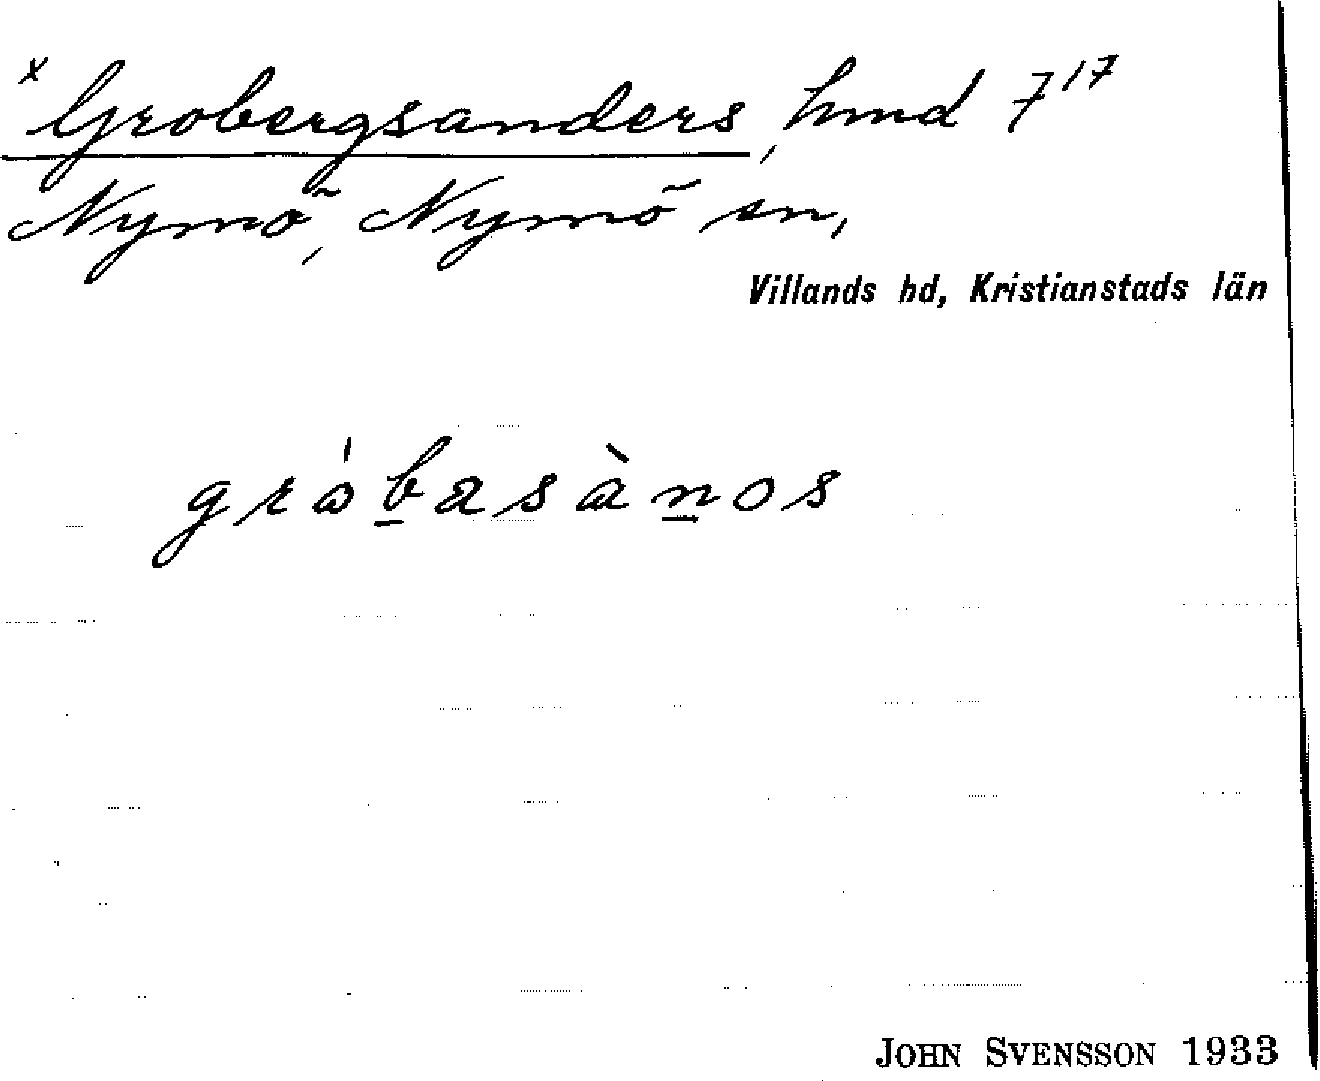 x Grobergsanders, hmd 7 17
Nymö, Nymö sn,
Villands hd, Kristianstads län
gròbasànos
JOHN SVENSSON 1933